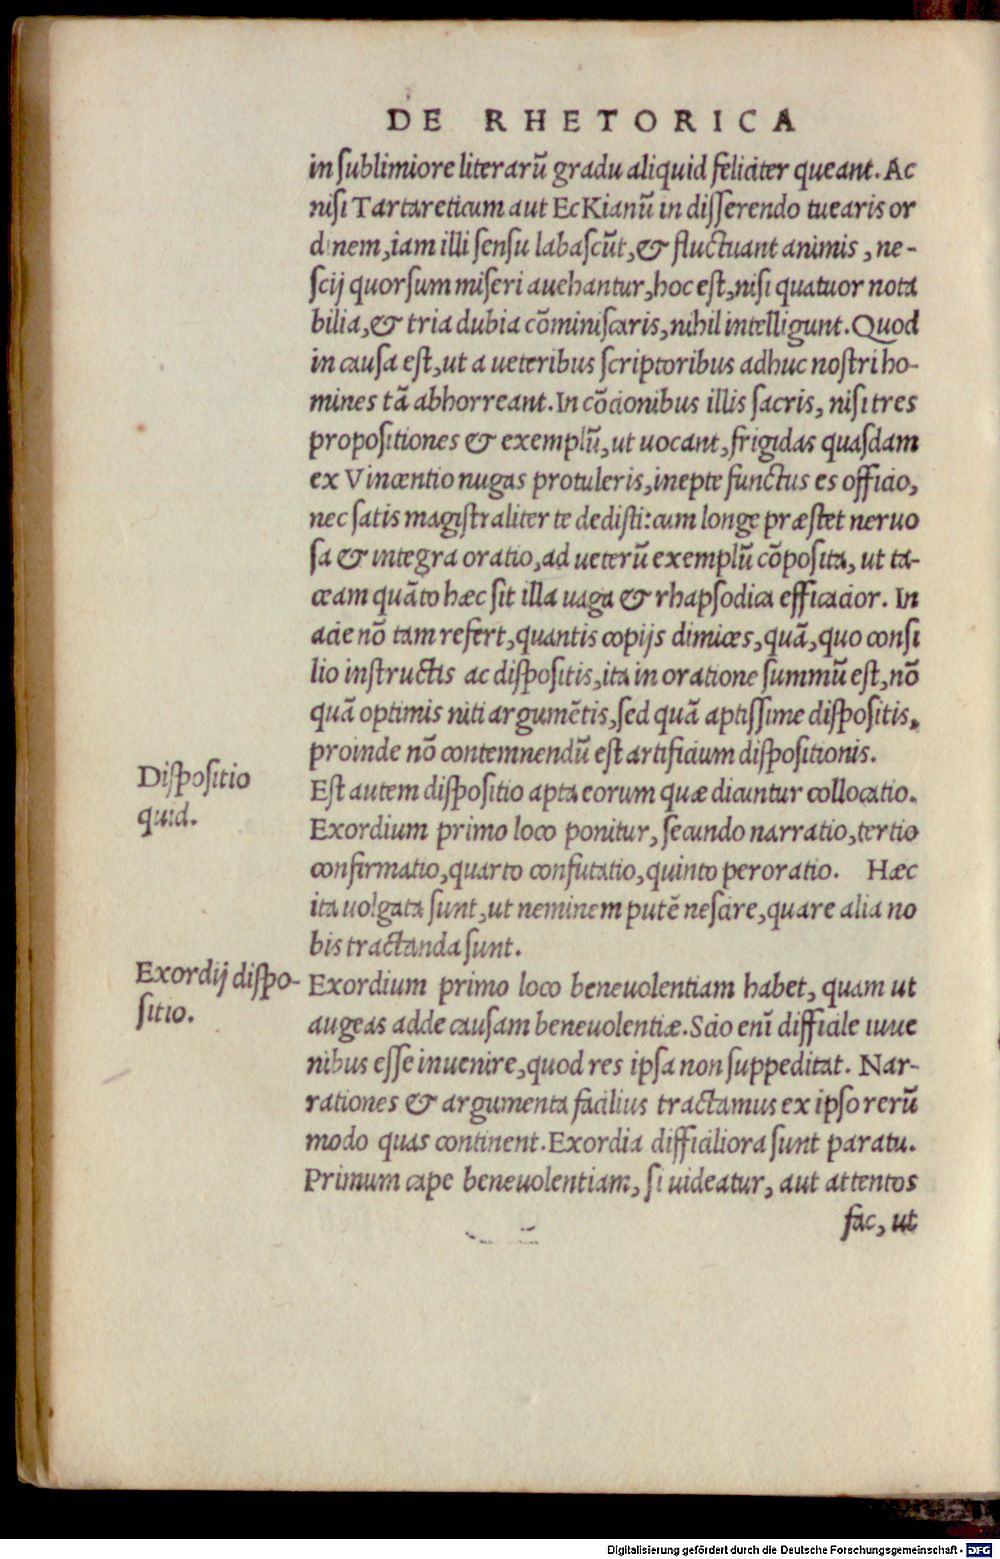 DE RHETORICA
in sublimiore literarũ gradu aliquid feliciter queant. Ac
nisi Tartareticum aut EcKianũ in disserendo tuearis or
dinem, iam illi sensu labascũt, & fluctuant animis, ne-
scij quorsum miseri auehantur, hoc est, nisi quatuor nota
bilia, & tria dubia cõminiscaris, nihil intelligunt. Quod
in causa est, ut a ueteribus scriptoribus adhuc nostri ho-
mines tã abhorreant. In cõcionibus illis sacris, nisi tres
propositiones & exemplũ, ut uocant, frigidas quasdam
ex Vincentio nugas protuleris, inepte functus es officio,
nec satis magistraliter te dedisti: cum longe præstet neruo
sa & integra oratio, ad ueterũ exemplũ cõposita, ut ta-
ceam quãto hæc sit illa uaga & rhapsodica efficacior. In
acie nõ tam refert, quantis copijs dimices, quã, quo consi
lio instructis ac dispositis, ita in oratione summũ est, nõ
quã optimis niti argumẽtis, sed quã aptissime dispositis,
proinde nõ contemnendũ est artificium dispositionis.
Dispositio
quid.
Est autem dispositio apta eorum quæ dicuntur collocatio.
Exordium primo loco ponitur, secundo narratio, tertio
confirmatio, quarto confutatio, quinto peroratio. Hæc
ita uolgata sunt, ut neminem putẽ nescire, quare alia no
bis tractanda sunt.
Exordij dispo-
sitio.
Exordium primo loco beneuolentiam habet, quam ut
augeas adde causam beneuolentiæ. Scio enĩ difficile iuue
nibus esse inuenire, quod res ipsa non suppeditat. Nar-
rationes & argumenta facilius tractamus ex ipso rerũ
modo quas continent. Exordia difficiliora sunt paratu.
Primum cape beneuolentiam, si uideatur, aut attentos
fac, ut
Digitalisierung gefördert durch die Deutsche Forschungsgemeinschaft - DFG